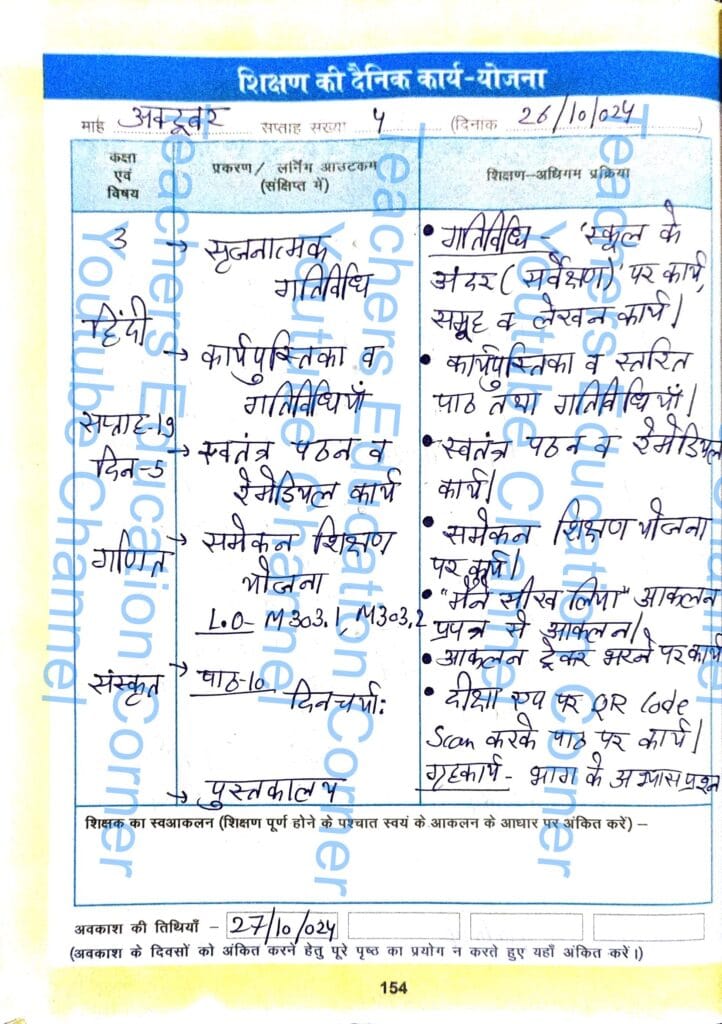 शिक्षण की दैनिक कार्य-योजना
माह अक्टूबर सप्ताह संख्या 4 (दिनांक 26/10/024)
कक्षा एवं विषय
प्रकरण/ लर्निंग आउटकम (संक्षिप्त में)
शिक्षण-अधिगम प्रक्रिया
3
हिंदी
सप्ताह-19
दिन-5
→ सृजनात्मक
गतिविधि
→ कार्यपुस्तिका व
गतिविधियाँ
→ स्वतंत्र पठन व
रेमेडियल कार्य
• गतिविधि - 'स्कूल के
अंदर (सर्वेक्षण)' पर कार्य,
समूह व लेखन कार्य।
• कार्यपुस्तिका व स्तरित
पाठ तथा गतिविधियाँ।
• स्वतंत्र पठन व रेमेडियल
कार्य।
गणित
→ समेकन शिक्षण
योजना
L.O- M303.1, M303.2
• समेकन शिक्षण योजना
पर कार्य।
• "मैंने सीख लिया" आकलन
प्रपत्र से आकलन।
• आकलन ट्रैकर भरने पर कार्य
संस्कृत
→ पाठ-10
दिनचर्या:
• दीक्षा एप पर QR Code
Scan करके पाठ पर कार्य।
गृहकार्य - भाग के अभ्यास प्रश्न
→ पुस्तकालय
शिक्षक का स्वआकलन (शिक्षण पूर्ण होने के पश्चात स्वयं के आकलन के आधार पर अंकित करें) –
अवकाश की तिथियाँ - 27/10/024
(अवकाश के दिवसों को अंकित करने हेतु पूरे पृष्ठ का प्रयोग न करते हुए यहाँ अंकित करें।)
154
Teachers Education Corner
Youtube Channel
Teachers Education Corner
Youtube Channel
Teachers Education Corner
Youtube Channel